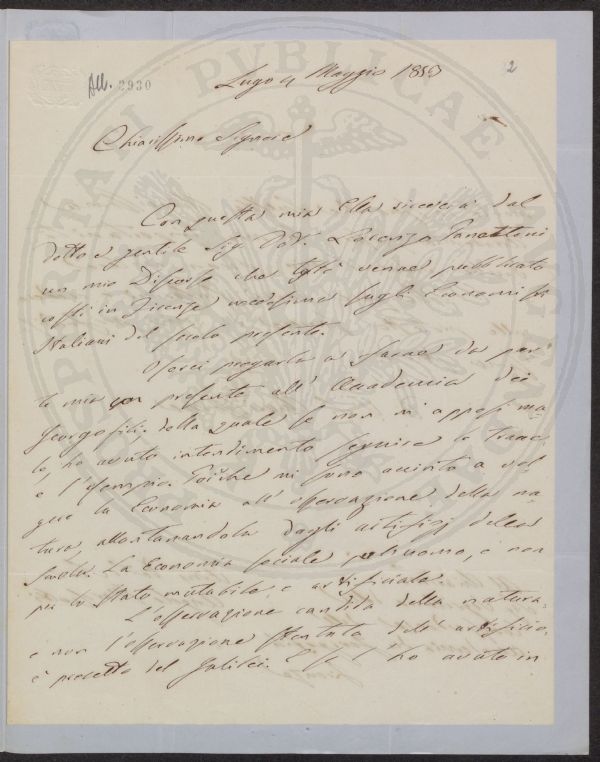 All. 2930
2
Lugo 4 Maggio 1853
Chiarissimo Signore
Con questa mia Ella riceverà dal
dotto e gentile Sig. Dot. Lorenzo Panattoni
un mio Discorso che testè venne pubblicato
costì in Firenze sugli Economisti
Italiani del secolo presente.
Oserei pregarla a farne da par
te mia presente all' Accademia dei
Georgofili, della quale se non m' apposi ma
le, ho avuto intendimento seguire le trac
e l'esempio. Poichè mi sono accinto a vol
gere la Economia all' osservazione della na
tura, allontanandola dagli artifizj della
Scuola. La Economia sociale è per l'uomo, e non
per lo stato mutabile, e artificiale.
L'osservazione candida della natura,
e non l'osservazione stentata dell' artificio,
è precetto del Galilei. E se l' ho avuto in
PVBLICAE